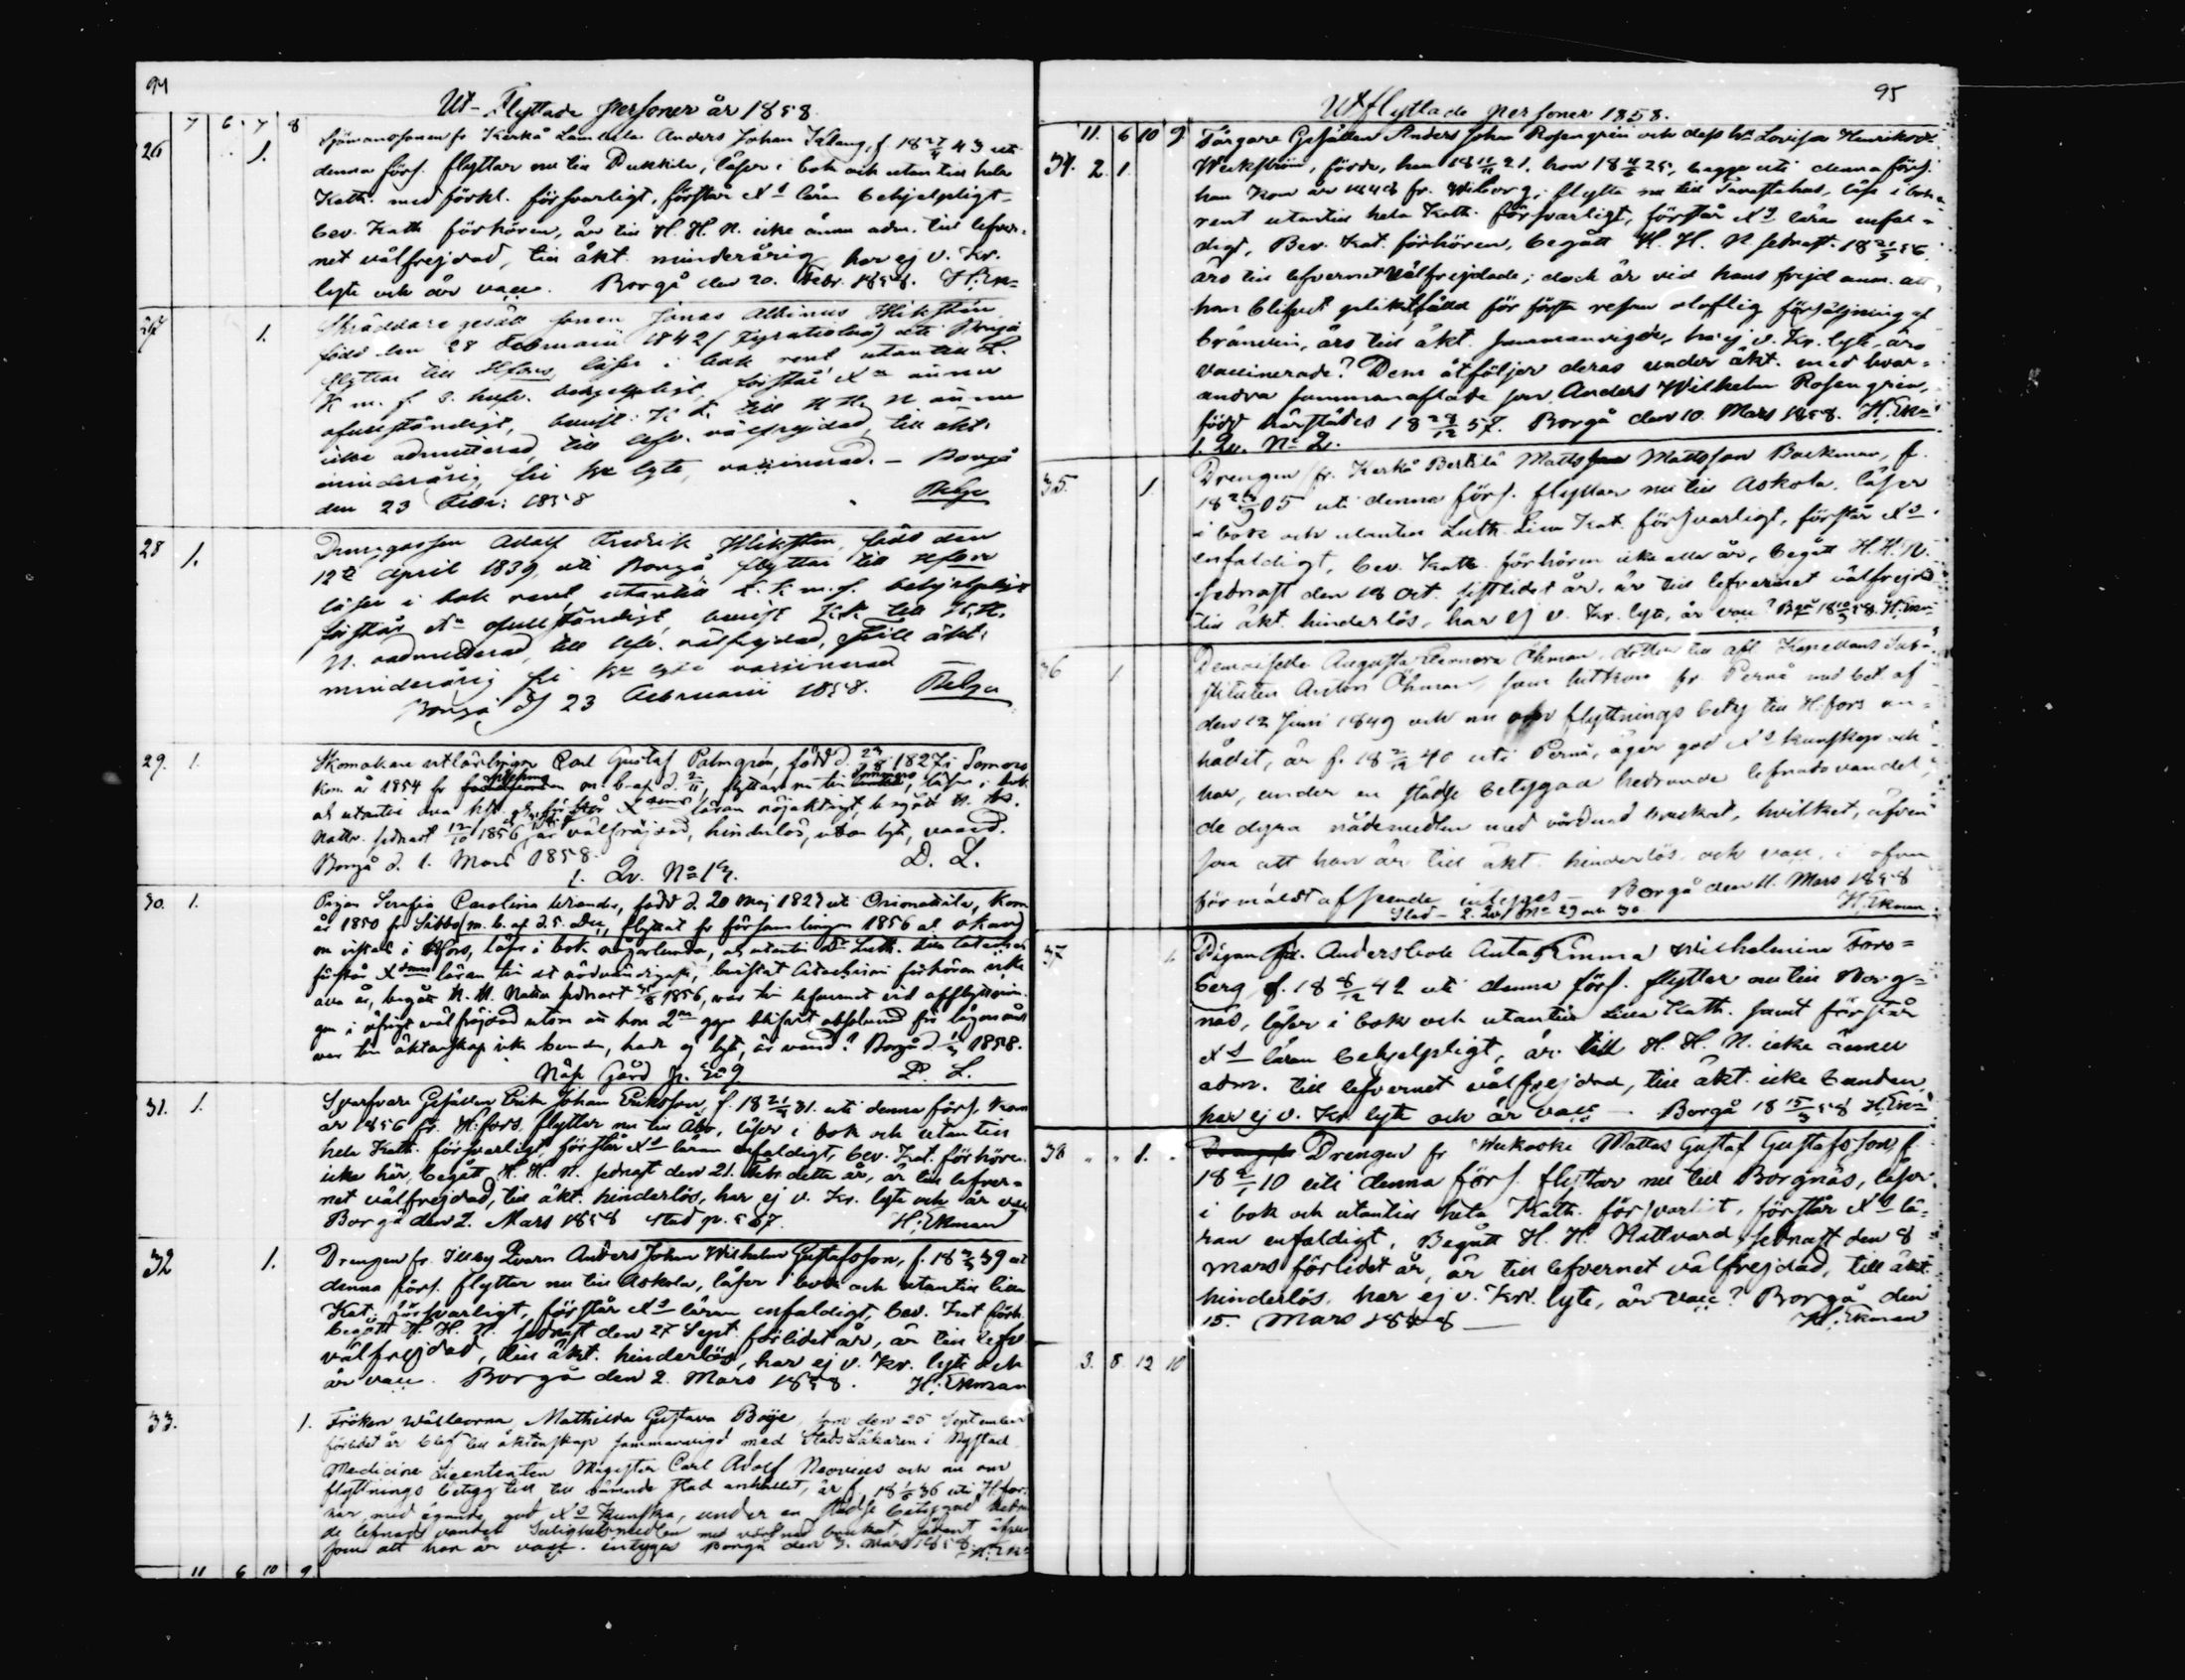 94
Ut-Flyttade personer år 1858.
7 6 7 8
26 1. Sjömanssonen fr Kerko Anders Johan Klang, f. 18 27/4 43 uti
denna förs. flyttar nu till Pukkila, läser i bok och utantill hela
Kath. med förkl. försvarligt, förstår Xs läran behjelpligt
bev. Kath förhören, är till H. H. N. icke ännu adm. till lefver-
net välfrejdad, till äkt. minderårig har ej v. Kr.
lyte och är vacc. Borgå den 20. Febr. 1858. H. Ek=
27 1. Skräddare gesäll sonen Jonas Albinus Wikstén
född den 28 Februarii 1842 uti Borgå
flyttar till Hfors, läser i bok rent utantill L.
K m. f. s. behjelpligt, förstår Xn ännu
ofullständigt, bevist. K. f. till H H N ännu
icke admitterad, till lefv. välfrejdad, till äkt.
minderårig, fri Kr lyte, vaccinerad. — Borgå
den 23 Febr: 1858
28 1. Drenggossen Adolf Fredrik Wiksten, född den
12te April 1839, uti Borgå flyttar till Hfors
läser i bok rent utantill L. K. m. f. behjelpligt
förstår Xn ofullständigt bevist K.f. till H. H.
N. admitterad, till lefv. välfrejdad, till äkt.
minderårig fri Kr lyte vaccinerad —
Borgå d 23 Februarii 1858.
29. 1. Skomakare utlärlingen Carl Gustaf Palmgrén, född d. 1827 i Somero
kom år 1854 fr m. b. af d. 2/11, flyttar nu till , läser i bok
förstår X läran nöjaktigt, begått H. H.
Nattv. sednast 12/10 1856, är välfrejdad, hinderlös, utan lyte, vaccd.
Borgå d. 1. Mars 1858. D. L.
1. Qv. No
30. 1. Pigan Serafia Carolina , född d. 20 Maj 1827 uti Orimattila, kom
år 1850 fr Sibbo m. b. af d. 5. Dec, flyttat fr församlingen 1856 al okänd
om vistas i Hfors, läser i bok någorlunda, al utantill Dr Luth. lilla
förstår X läran till det nödvändigaste, bevistat förhören icke
alla år, begått H. H. Nattv. sednast 1856, war till lefvernet vid afflyttnin
gen i öfrigt välfrejdad utom att hon 2ne ggr blifvit absolverad för lägersmål
war till äktenskap icke bunden, hade ej lyte, är vaccd? Borgå d. 1858.
Näse Gård D. L.
31. 1. Svarfvare Gesällen Erik Johan Eriksson, f. 18 31. uti denna förs. kom
år 1856 fr. H:fors. flyttar nu till Åbo, läser i bok och utantill
hela Kath. försvarligt, förstår Xs läran enfaldigt, bev. Kat. förhören
icke här, begått H. H. N. sednast den 21. Febr. detta år, är till lefver=
net välfrejdad, till äkt. hinderlös, har ej v. Kr. lyte och är vacc
Borgå den 2. Mars 1858 stad p. 567. H. Ekman
32 1. Drengen fr. Illby Qvarn Anders Johan Wilhelm Gustafsson, f. 18 39 uti
denna förs. flyttar nu till Askola, läser i bok och utantill lilla
Kat. försvarligt, förstår Xs läran enfaldigt, bev. Kat förh.
begått H. H. N. sednast den 27 Sept. förlidet år, är till lefv.
välfrejdad, till äkt. hinderlös, har ej v. Kr. lyte och
är vacc. Borgå den 2. Mars 1858. H: Ekman
33. 1. Fröken wälborna Mathilda Gustava Boije, som den 25 September
förlidet år blef till äktenskap sammanvigd med Stads Läkaren i Nystad
Medicine Licentiaten Magister Carl Adolf Neovius och nu om
flyttnings betyg till till nämnde stad anhållet, är f. 18 36 uti H:fors
har, med ägande god Xs kunskap, under en städse betygad hedran
de lefnads vandel Salighetsmedlen med vördnad brukat, äfven
som att hon är vacc. intygar Borgå den 3. Mars 1858. H: Ek=
11 6 10 9
95
Utflyttade personer 1858.
11. 6 10 9
34. 2. 1. Färgare Gesällen Anders Johan Rosengrén och dess hu Lovisa Henriksdr
Wickström, födde, han 18 21, hon 18 25, begge uti denna förs.
han kom år 1848 fr. Wiborg, flytta nu till Tavastehus, läsa i bok
rent utantill hela Kath. försvarligt, förstår Xs läran enfal=
digt, Bev. Kat. förhören, begått H. H. N. sednast 18 56
äro till lefvernet välfrejdade; dock är vid hans frejd anm. att
han blifvit pliktfälld för första resan oloflig försäljning af
brännvin, äro till äkt. sammanvigde, ha ej v. Kr. lyte, äro
vaccinerade? Dem åtföljer deras under äkt. med hvar=
andra sammanaflade son Anders Wilhelm Rosengrén,
född härstädes 18 28/12 57. Borgå den 10. Mars 1858. H. Ek=
1. Qv. No 2.
35. 1. Drengen fr. Kerko Bertila Matts Mattsson Backman, f.
18 05 uti denna förs. flyttar nu till Askola, läser
i bok och utantill Luth. Lilla Kat. försvarligt, förstår Xs
enfaldigt, bev. Kath. förhören icke alla år, begått H. H. N.
sednast den 18 Oct. sistlidet år, är till lefvernet välfrejd
till äkt. hinderlös, har ej v. Kr. lyte, är vacc? Bgå 18 58. H. Ek=
36 1 Demoiselle Augusta Eleonora Öhman, dotter till afl. Kapellans Sub=
stituten Anton Öhman, som hitkom fr Pernå med bet. af
den 12 Juni 1849 och nu om flyttnings betyg till H:fors an=
hållit, är f. 18 2/12 40 uti Pernå, äger god Xs kunskap och
har, under en städse betygad hedrande lefnadsvandel,
de dyra nådemedlen med vördnad brukat, hvilket, äfven
som att hon är till äkt. hinderlös och vacc., i ofvan
förmäldt afseende intygas — Borgå den 11. Mars 1858
Stad — 2. Qv. No 29 och 30. H. Ekman
37 1. Pigan fr. Andersböle Anta Emma Wilhelmina Fors=
berg, f. 18 8/12 42 uti denna förs. flyttar nu till Borg=
näs, läser i bok och utantill Lilla Kath. samt förstår
Xs läran behjelpligt, är till H. H. N. icke ännu
adm. till lefvernet välfrejdad, till äkt. icke bunden
har ej v. Kr. lyte och är vacc — Borgå 18 15/3 58 H. Ek=
38 " " 1. " Drengen fr Wekoski Mattas Gustaf Gustafsson, f.
18 2/1 10 uti denna förs. flyttar nu till Borgnäs, läser
i bok och utantill hela Kath. försvarligt, förstår Xs lä=
ran enfaldigt, Begått H. H. Nattvard sednast den 8
mars förlidet år, är till lefvernet välfrejdad, till äkt.
hinderlös, har ej v. Kr. lyte, är vacc? Borgå den
15. Mars 1858 — H. Ekman
3. 8 12 10